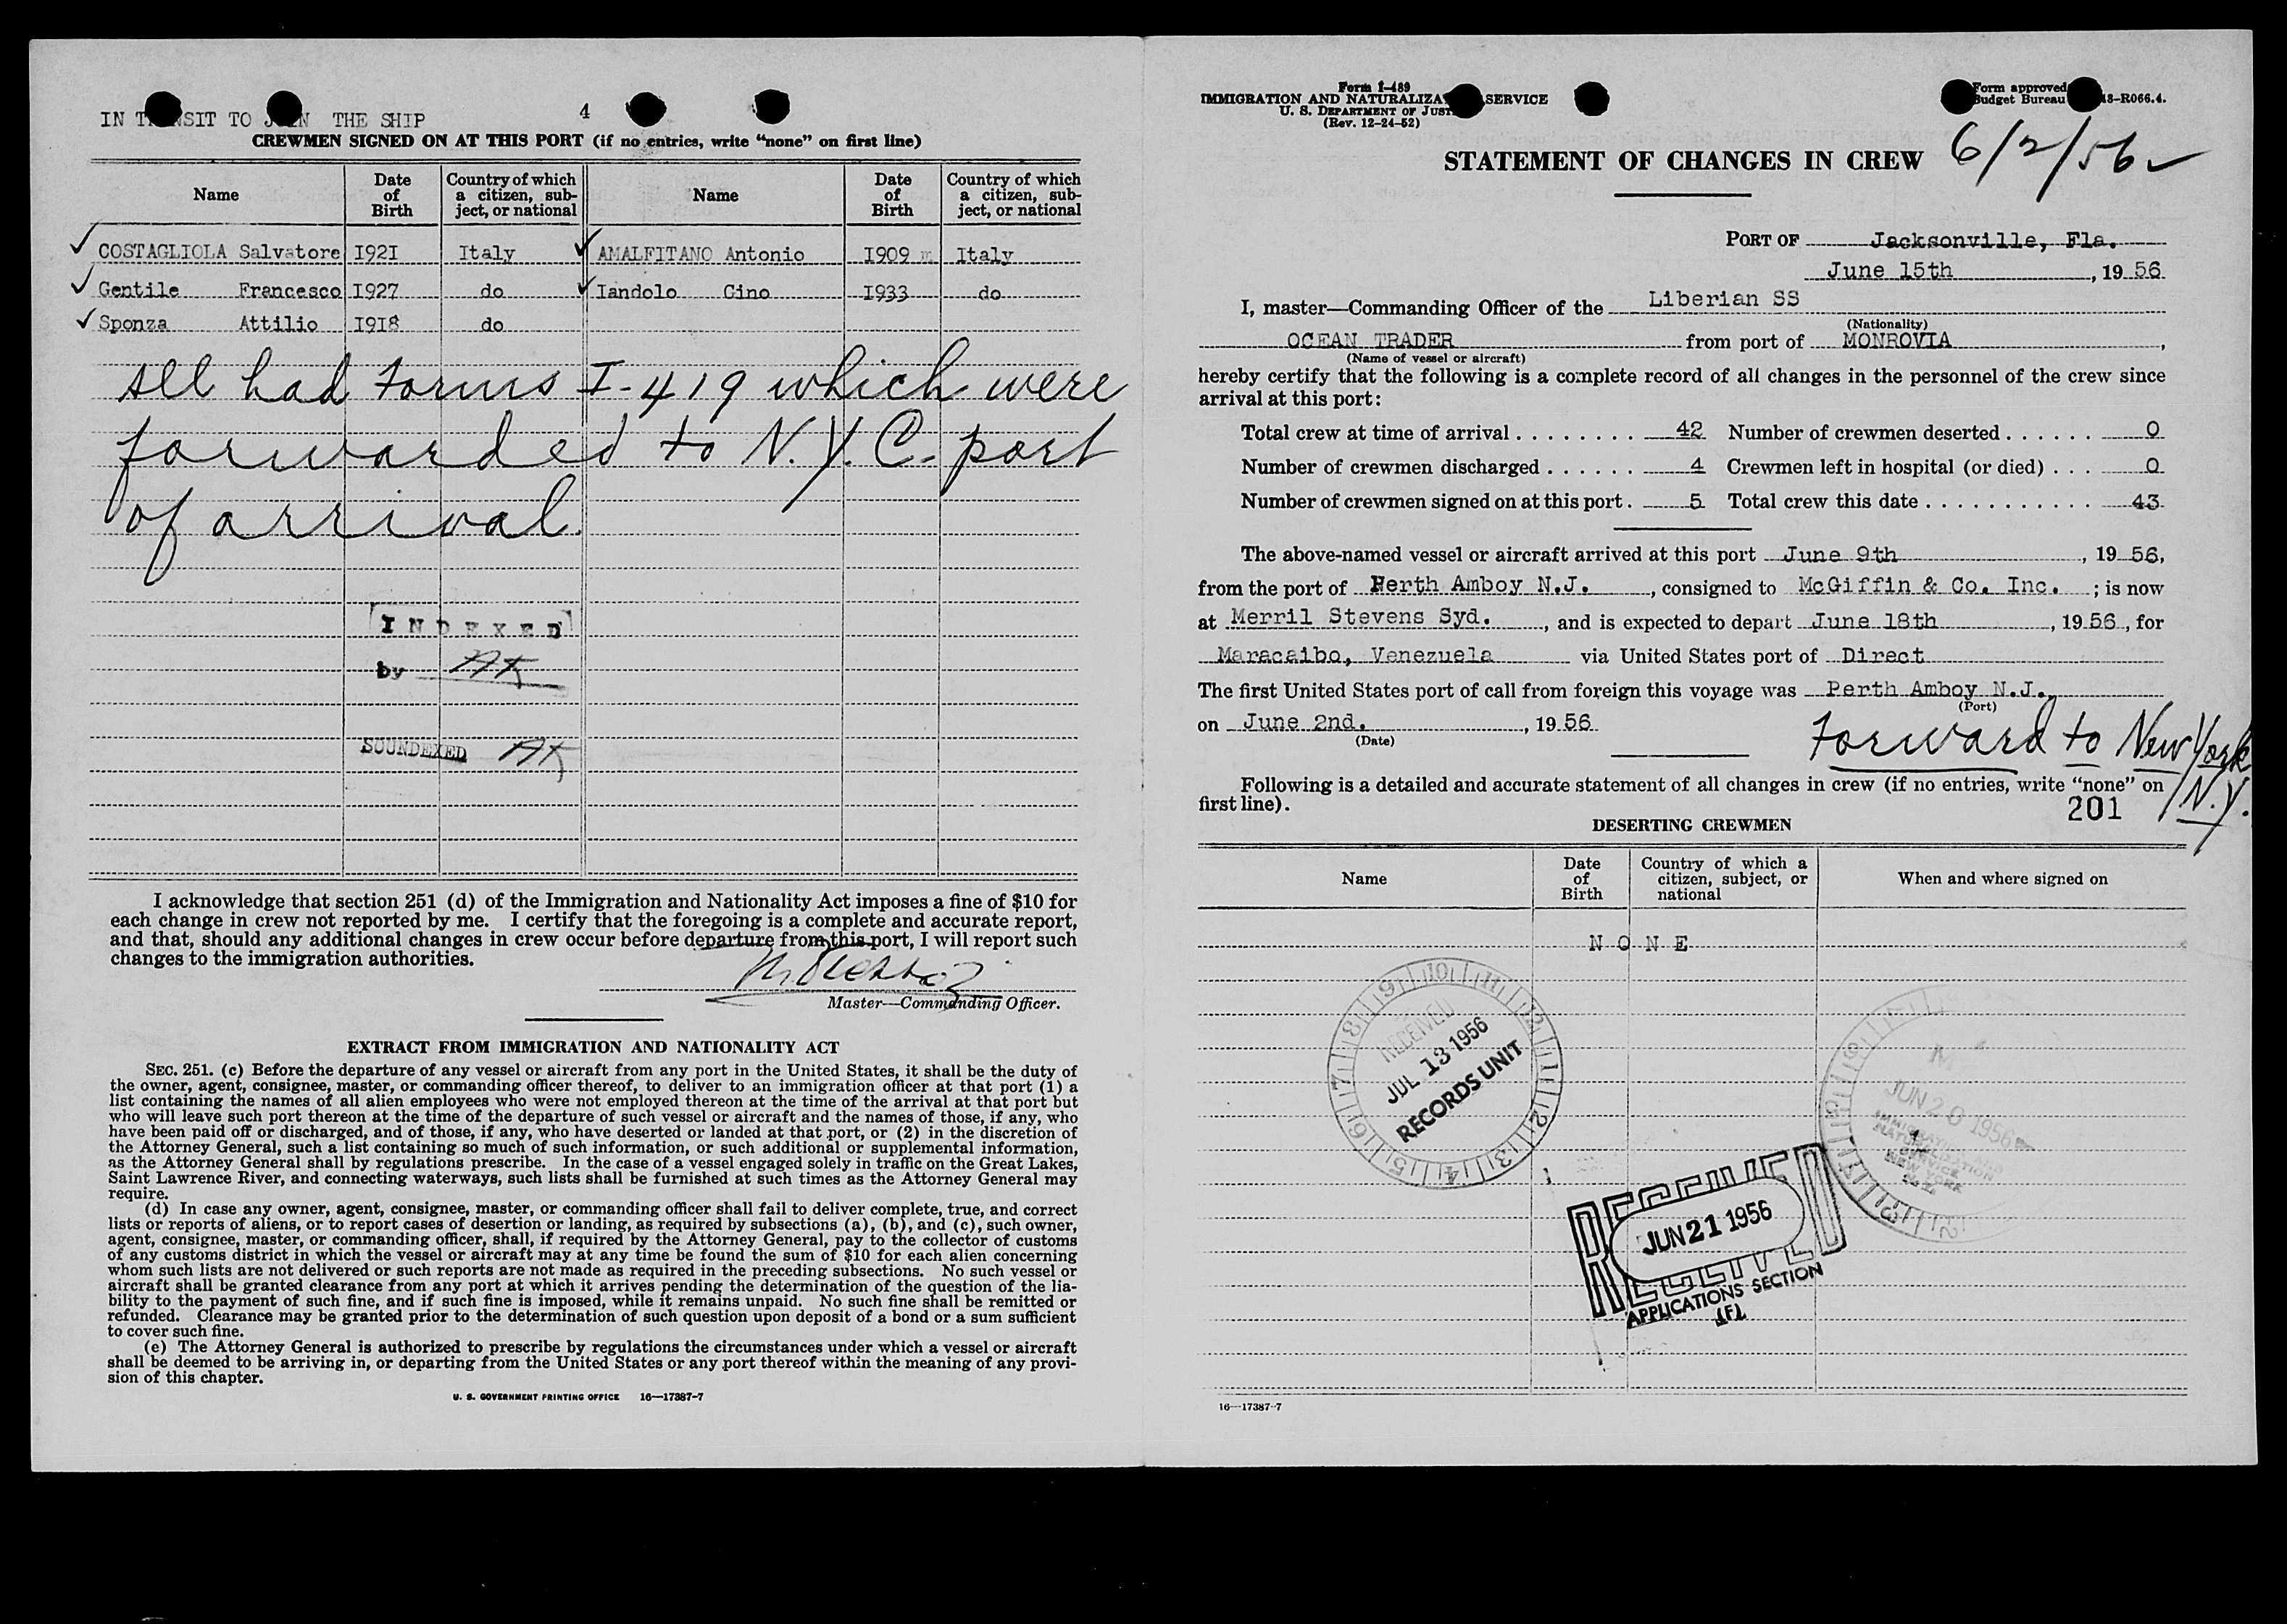 IN TRANSIT TO JOIN THE SHIP
4
CREWMEN SIGNED ON AT THIS PORT (if no entries, write “none” on first line)
Name Date of Birth Country of which a citizen, subject, or national Name Date of Birth Country of which a citizen, subject, or national
✓ COSTAGLIOLA Salvatore 1921 Italy ✓ AMALFITANO Antonio 1909 Italy
✓ Gentile Francesco 1927 do ✓ Iandolo Gino 1933 do
✓ Sponza Attilio 1918 do
All had forms I-419 which were
forwarded to N.Y.C. port
of arrival.
INDEXED
by AK
SOUNDEXED AK
I acknowledge that section 251 (d) of the Immigration and Nationality Act imposes a fine of $10 for
each change in crew not reported by me. I certify that the foregoing is a complete and accurate report,
and that, should any additional changes in crew occur before departure from this port, I will report such
changes to the immigration authorities.
Master—Commanding Officer.
EXTRACT FROM IMMIGRATION AND NATIONALITY ACT
SEC. 251. (c) Before the departure of any vessel or aircraft from any port in the United States, it shall be the duty of
the owner, agent, consignee, master, or commanding officer thereof, to deliver to an immigration officer at that port (1) a
list containing the names of all alien employees who were not employed thereon at the time of the arrival at that port but
who will leave such port thereon at the time of the departure of such vessel or aircraft and the names of those, if any, who
have been paid off or discharged, and of those, if any, who have deserted or landed at that port, or (2) in the discretion of
the Attorney General, such a list containing so much of such information, or such additional or supplemental information,
as the Attorney General shall by regulations prescribe. In the case of a vessel engaged solely in traffic on the Great Lakes,
Saint Lawrence River, and connecting waterways, such lists shall be furnished at such times as the Attorney General may
require.
(d) In case any owner, agent, consignee, master, or commanding officer shall fail to deliver complete, true, and correct
lists or reports of aliens, or to report cases of desertion or landing, as required by subsections (a), (b), and (c), such owner,
agent, consignee, master, or commanding officer, shall, if required by the Attorney General, pay to the collector of customs
of any customs district in which the vessel or aircraft may at any time be found the sum of $10 for each alien concerning
whom such lists are not delivered or such reports are not made as required in the preceding subsections. No such vessel or
aircraft shall be granted clearance from any port at which it arrives pending the determination of the question of the lia-
bility to the payment of such fine, and if such fine is imposed, while it remains unpaid. No such fine shall be remitted or
refunded. Clearance may be granted prior to the determination of such question upon deposit of a bond or a sum sufficient
to cover such fine.
(e) The Attorney General is authorized to prescribe by regulations the circumstances under which a vessel or aircraft
shall be deemed to be arriving in, or departing from the United States or any port thereof within the meaning of any provi-
sion of this chapter.
U. S. GOVERNMENT PRINTING OFFICE 16—17387-7
Form I-489
IMMIGRATION AND NATURALIZATION SERVICE
U. S. DEPARTMENT OF JUSTICE
(Rev. 12-24-52)
Form approved
Budget Bureau 43-R066.4.
6/2/56
STATEMENT OF CHANGES IN CREW
PORT OF Jacksonville, Fla.
June 15th, 1956
I, master—Commanding Officer of the Liberian SS
(Nationality)
OCEAN TRADER from port of MONROVIA,
(Name of vessel or aircraft)
hereby certify that the following is a complete record of all changes in the personnel of the crew since
arrival at this port:
Total crew at time of arrival 42 Number of crewmen deserted 0
Number of crewmen discharged 4 Crewmen left in hospital (or died) 0
Number of crewmen signed on at this port 5 Total crew this date 43
The above-named vessel or aircraft arrived at this port June 9th, 1956,
from the port of Perth Amboy N.J., consigned to McGiffin & Co. Inc.; is now
at Merril Stevens Syd., and is expected to depart June 18th, 1956, for
Maracaibo, Venezuela via United States port of Direct
The first United States port of call from foreign this voyage was Perth Amboy N.J.,
(Port)
on June 2nd., 1956
(Date)
Forward to New York
N.Y.
Following is a detailed and accurate statement of all changes in crew (if no entries, write “none” on
first line).
201
DESERTING CREWMEN
Name Date of Birth Country of which a citizen, subject, or national When and where signed on
NONE
RECEIVED
JUL 13 1956
RECORDS UNIT
JUN 20 1956
IMMIGRATION AND
NATURALIZATION
SERVICE
NEW YORK
RECEIVED
JUN 21 1956
RECEIVED
APPLICATIONS SECTION
(F)
16—17387-7